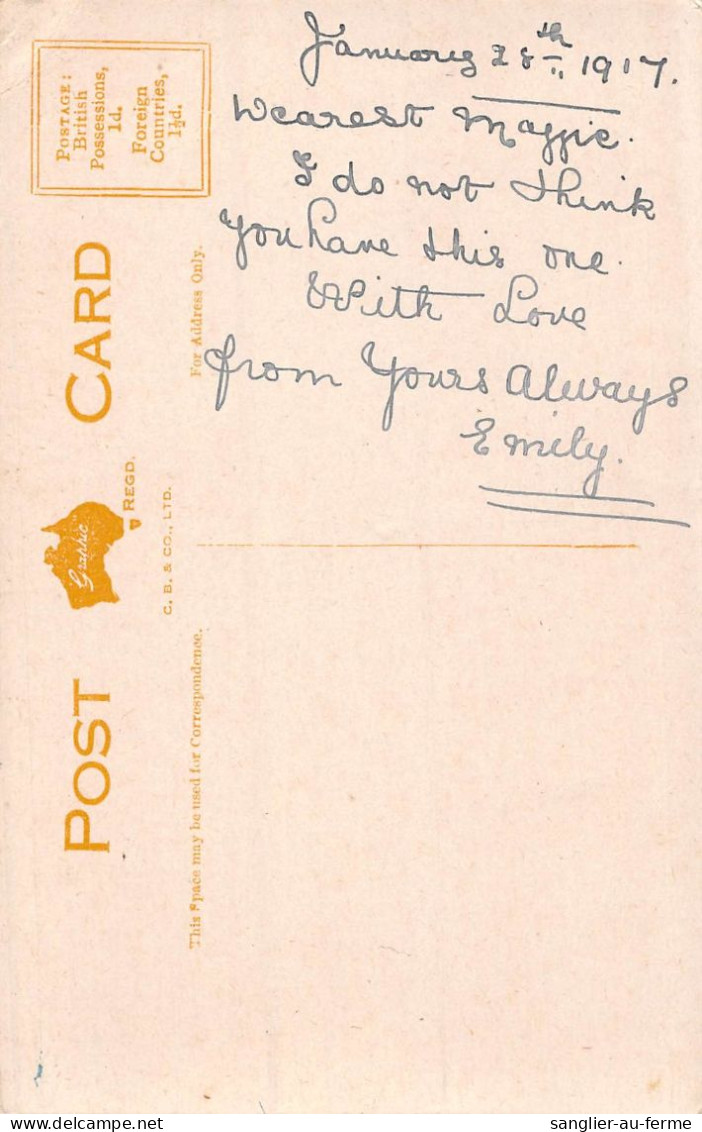 January 28th 1917.
Dearest Maggie.
I do not think
you have this one.
With Love
from Yours Always
Emily.
POSTAGE:
British
Possessions,
1d.
Foreign
Countries,
1½d.
POST CARD
Graphic
REGD.
C. B. & CO., LTD.
This Space may be used for Correspondence.
For Address Only.
sanglier-au-ferme